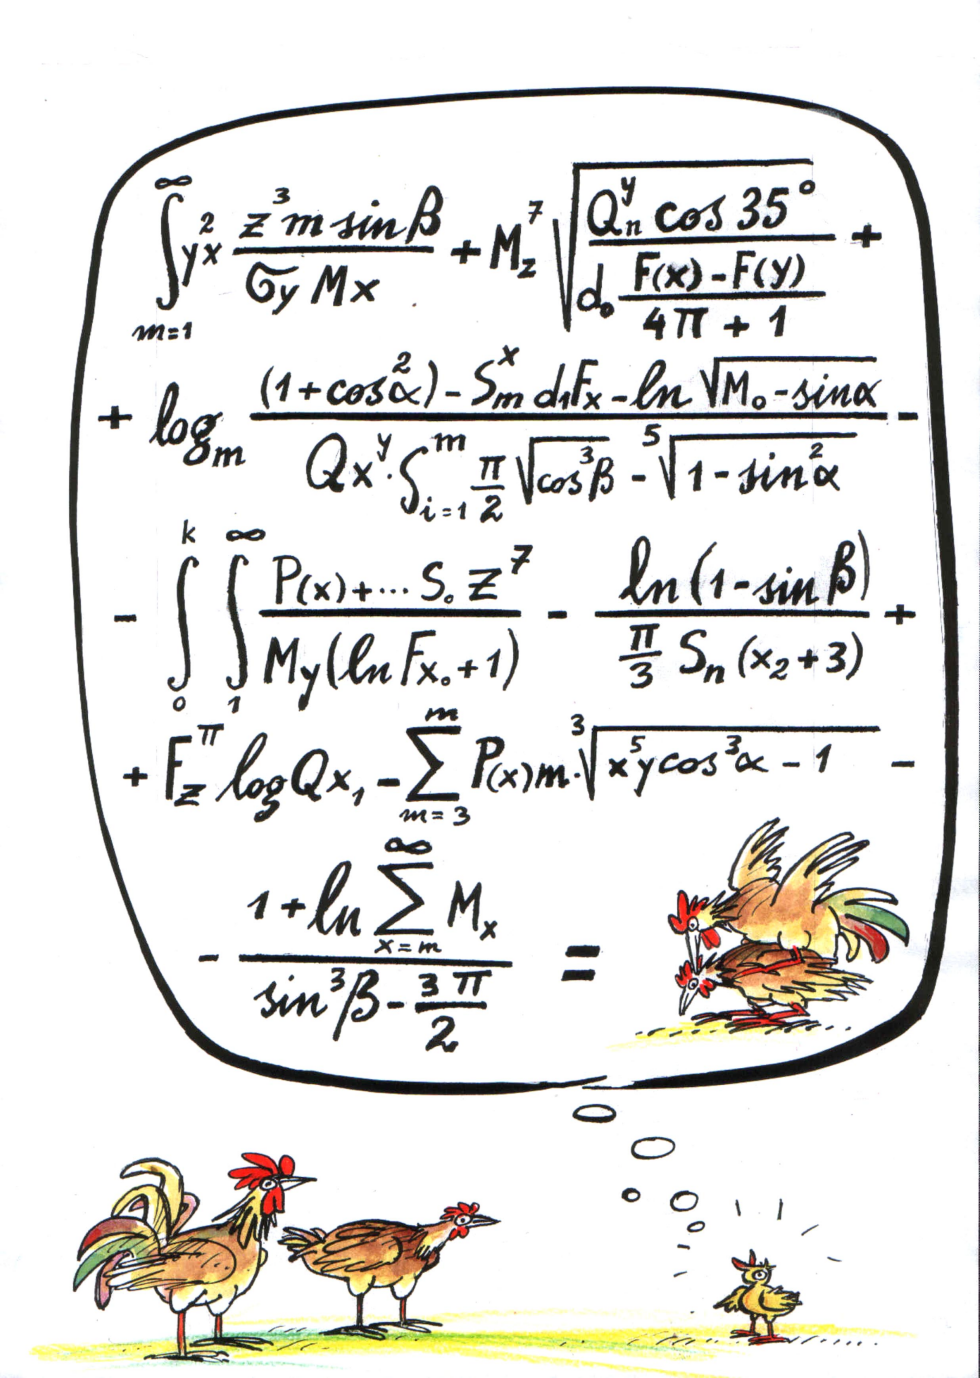 ∫_{m=1}^{∞} y x^2 (z^3 m sin β)/(σ_y M x) + M_z^7 √((Q_n^y cos 35°)/(d_0 (F(x) - F(y))/(4π + 1))) +
+ log_m ((1 + cos^2 α) - S_m^x d_1 F_x - ln √(M_0 - sin α))/(Q x^y · ∫_{i=1}^{m} π/2 √(cos^3 β) - ⁵√(1 - sin^2 α)) -
- ∫_0^k ∫_1^∞ (P(x) + ... S_0 z^7)/(M y (ln F x_0 + 1)) - (ln (1 - sin β))/(π/3 S_n (x_2 + 3)) +
+ F_z^π log Q x_1 - ∑_{m=3}^{m} P(x) m · ³√(x^5 y cos^3 α - 1) -
- (1 + ln ∑_{x=m}^{∞} M_x)/(sin^3 β - 3π/2) =